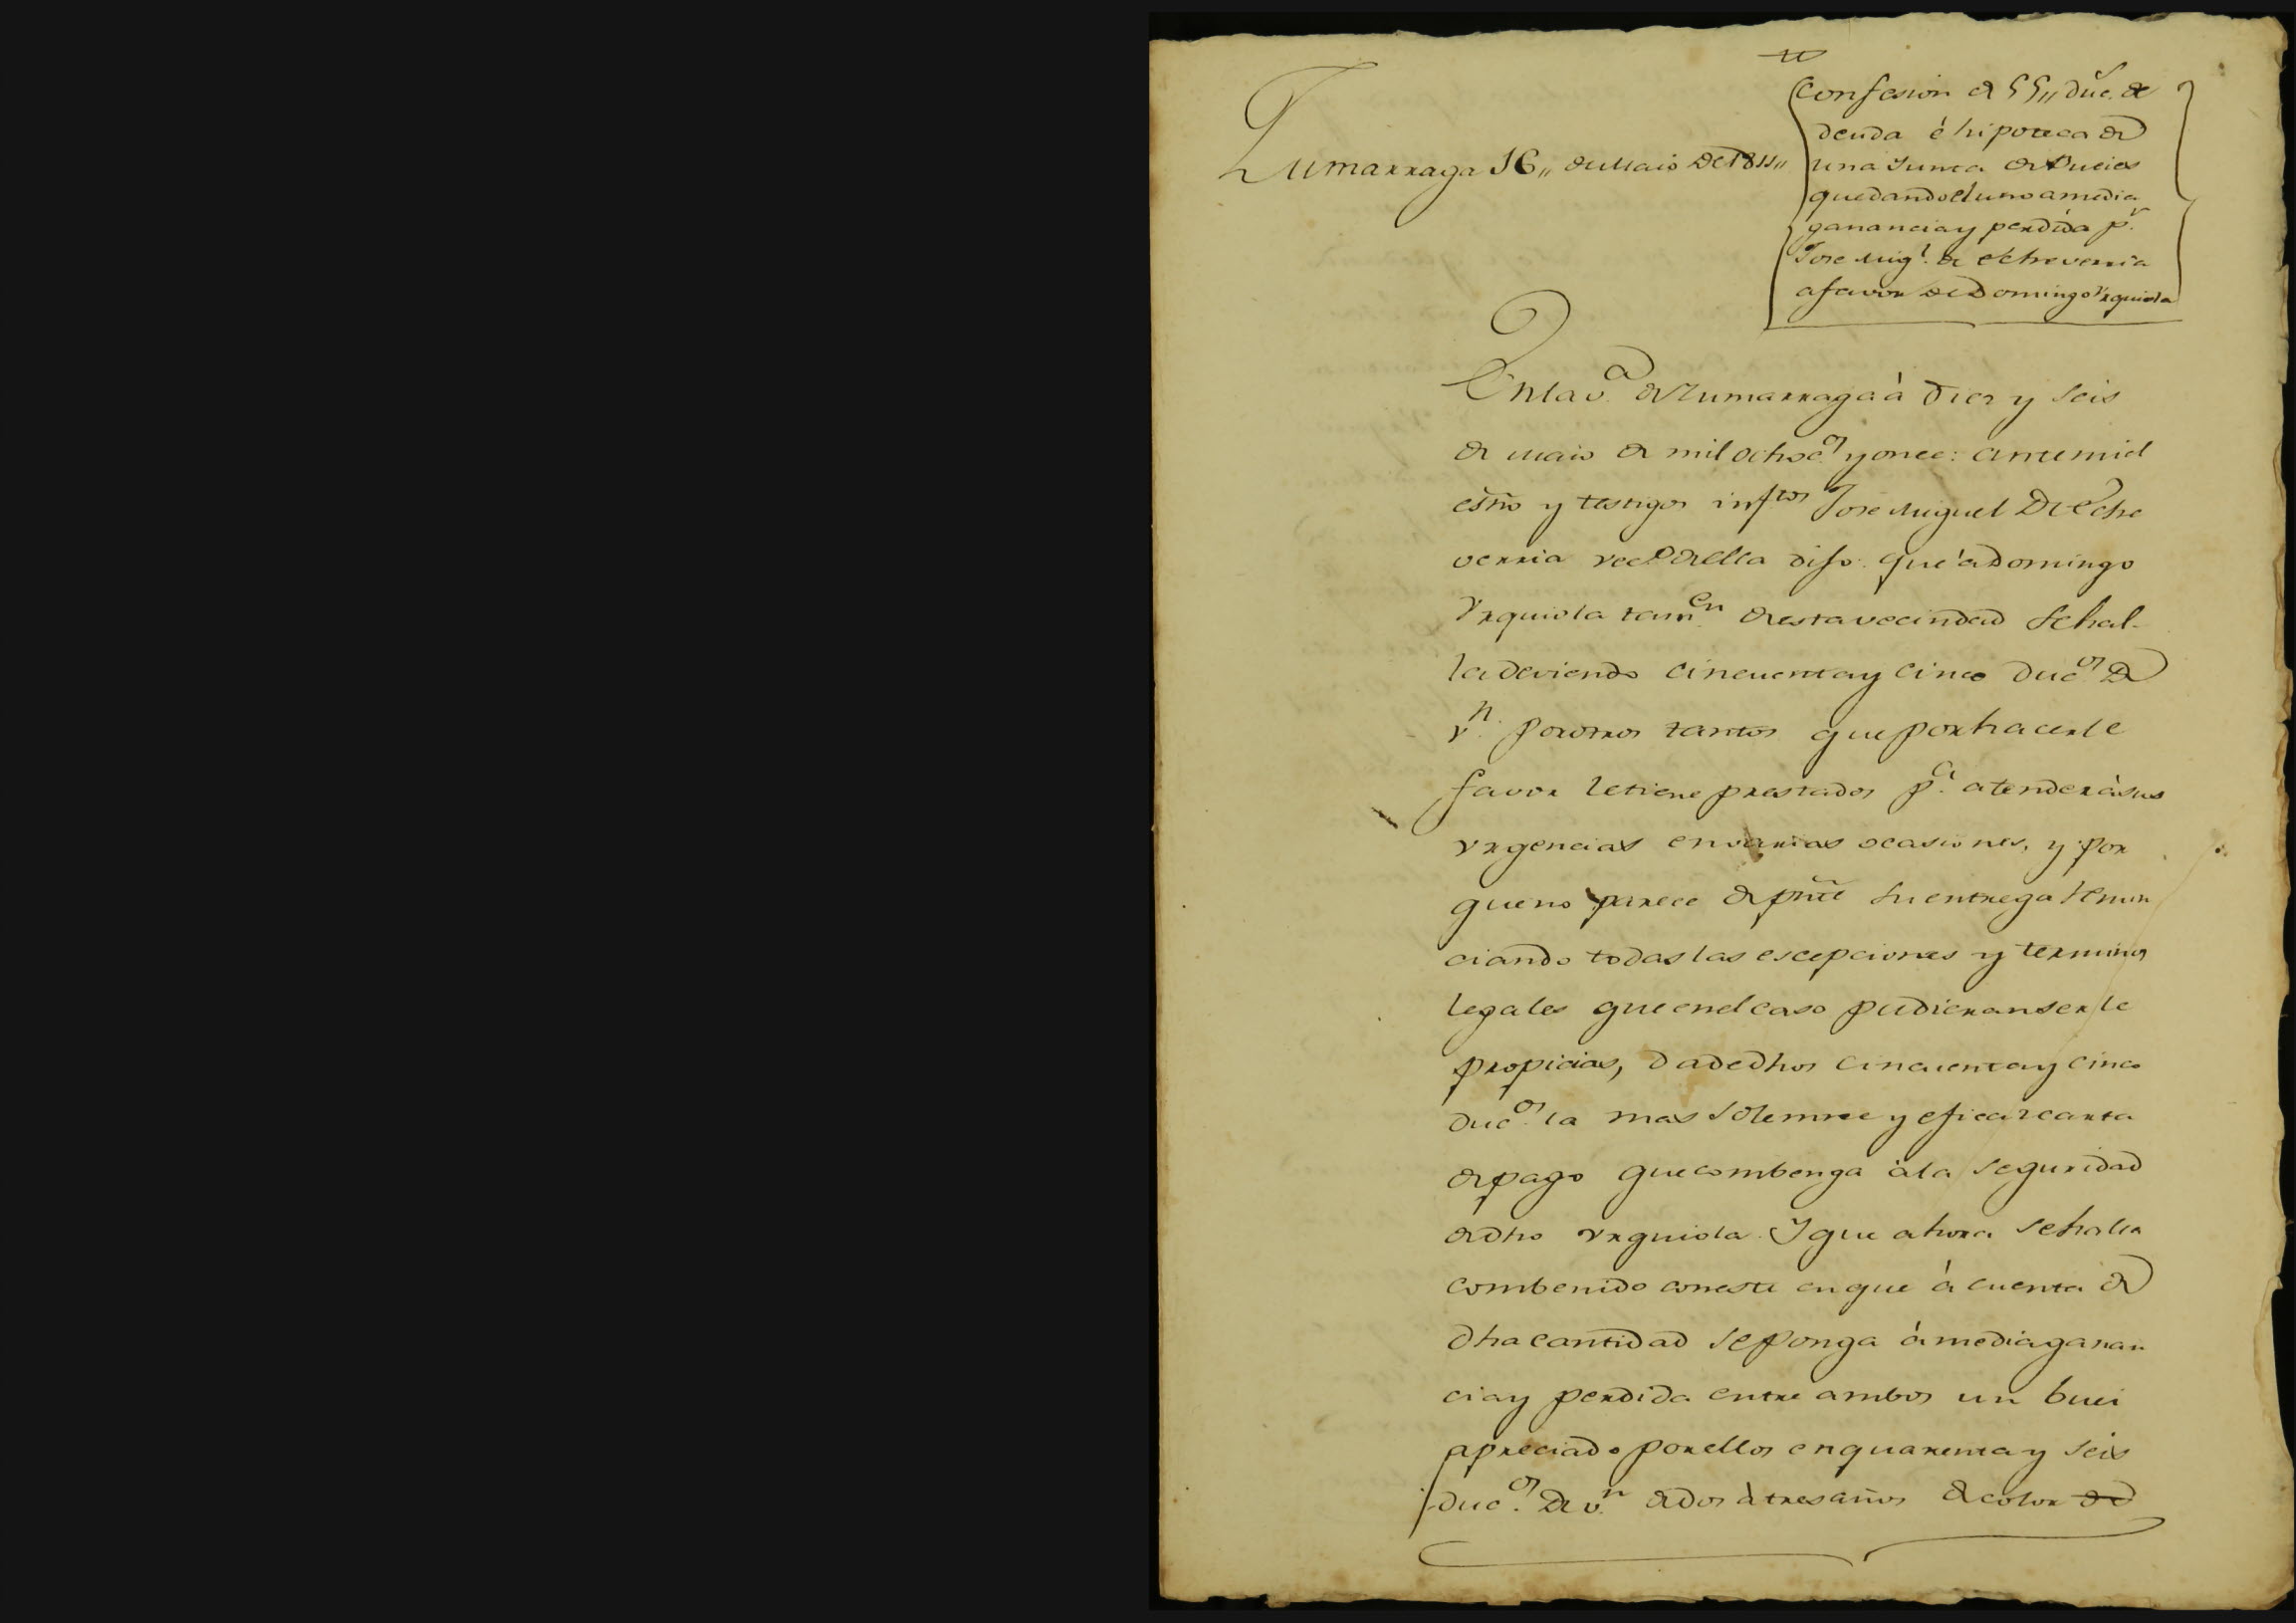 Zumarraga 16,, de Maio de 1811,,
Confesion de 55,, duc.s de
deuda é hipoteca de
una Junta de Bueies
quedando el uno a media
ganancia y perdida p.r
Jose Mig.l de Echeverria
a favor de Domingo Vrquiola
En la v.a de Zumarraga à diez y seis
de Maio de mil ochoc.os y once: ante mi el
esno y testigos inf.tos Jose Miguel de Eche
verria vec.o de ella dijo: que à Domingo
Vrquiola tam.en de esta vecindad se hal-
la deviendo cincuenta y cinco duc.os de
v.n por otros tantos que por hacerle
favor le tiene prestados p.a atender à sus
vrgencias en varias ocasiones, y por
que no parece de pnte su entrega renun
ciando todas las escepciones y terminos
legales que en el caso pudieran serle
propicias, da de dhos cincuenta y cinco
duc.os la mas solemne y eficaz carta
de pago que combenga à la seguridad
de dho vrquiola. Y que ahora se halla
combenido con este en que à cuenta de
dha cantidad se ponga à media ganan
cia y perdida entre ambos un buei
apreciado por ellos en quarenta y seis
duc.os de v.n de dos à tres años de color de